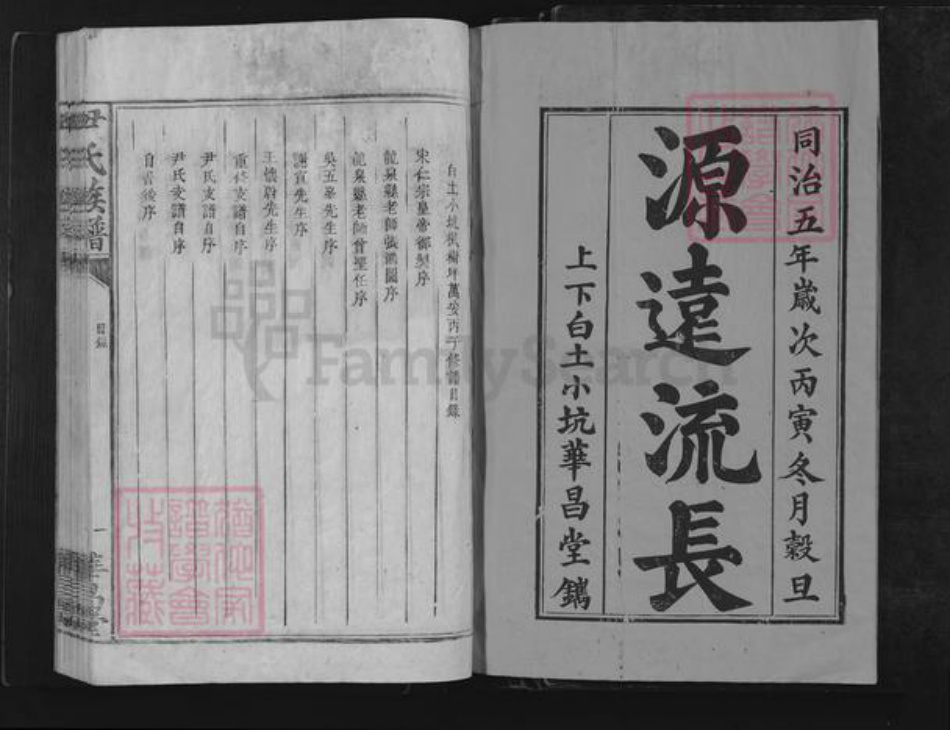 同治五年歲次丙寅冬月穀旦
源遠流長
上下白土小坑華昌堂鐫
白土小坑楓樹坪萬安丙子修譜目錄
宋仁宗皇帝御製序
龍泉縣老師張鴻圖序
龍泉縣老師曾聖任序
吳五峯先生序
謝宣先生序
王懷蔚先生序
重修支譜自序
尹氏支譜自序
尹氏支譜自序
自書後序
尹氏族譜
目錄
一
華昌堂
FamilySearch